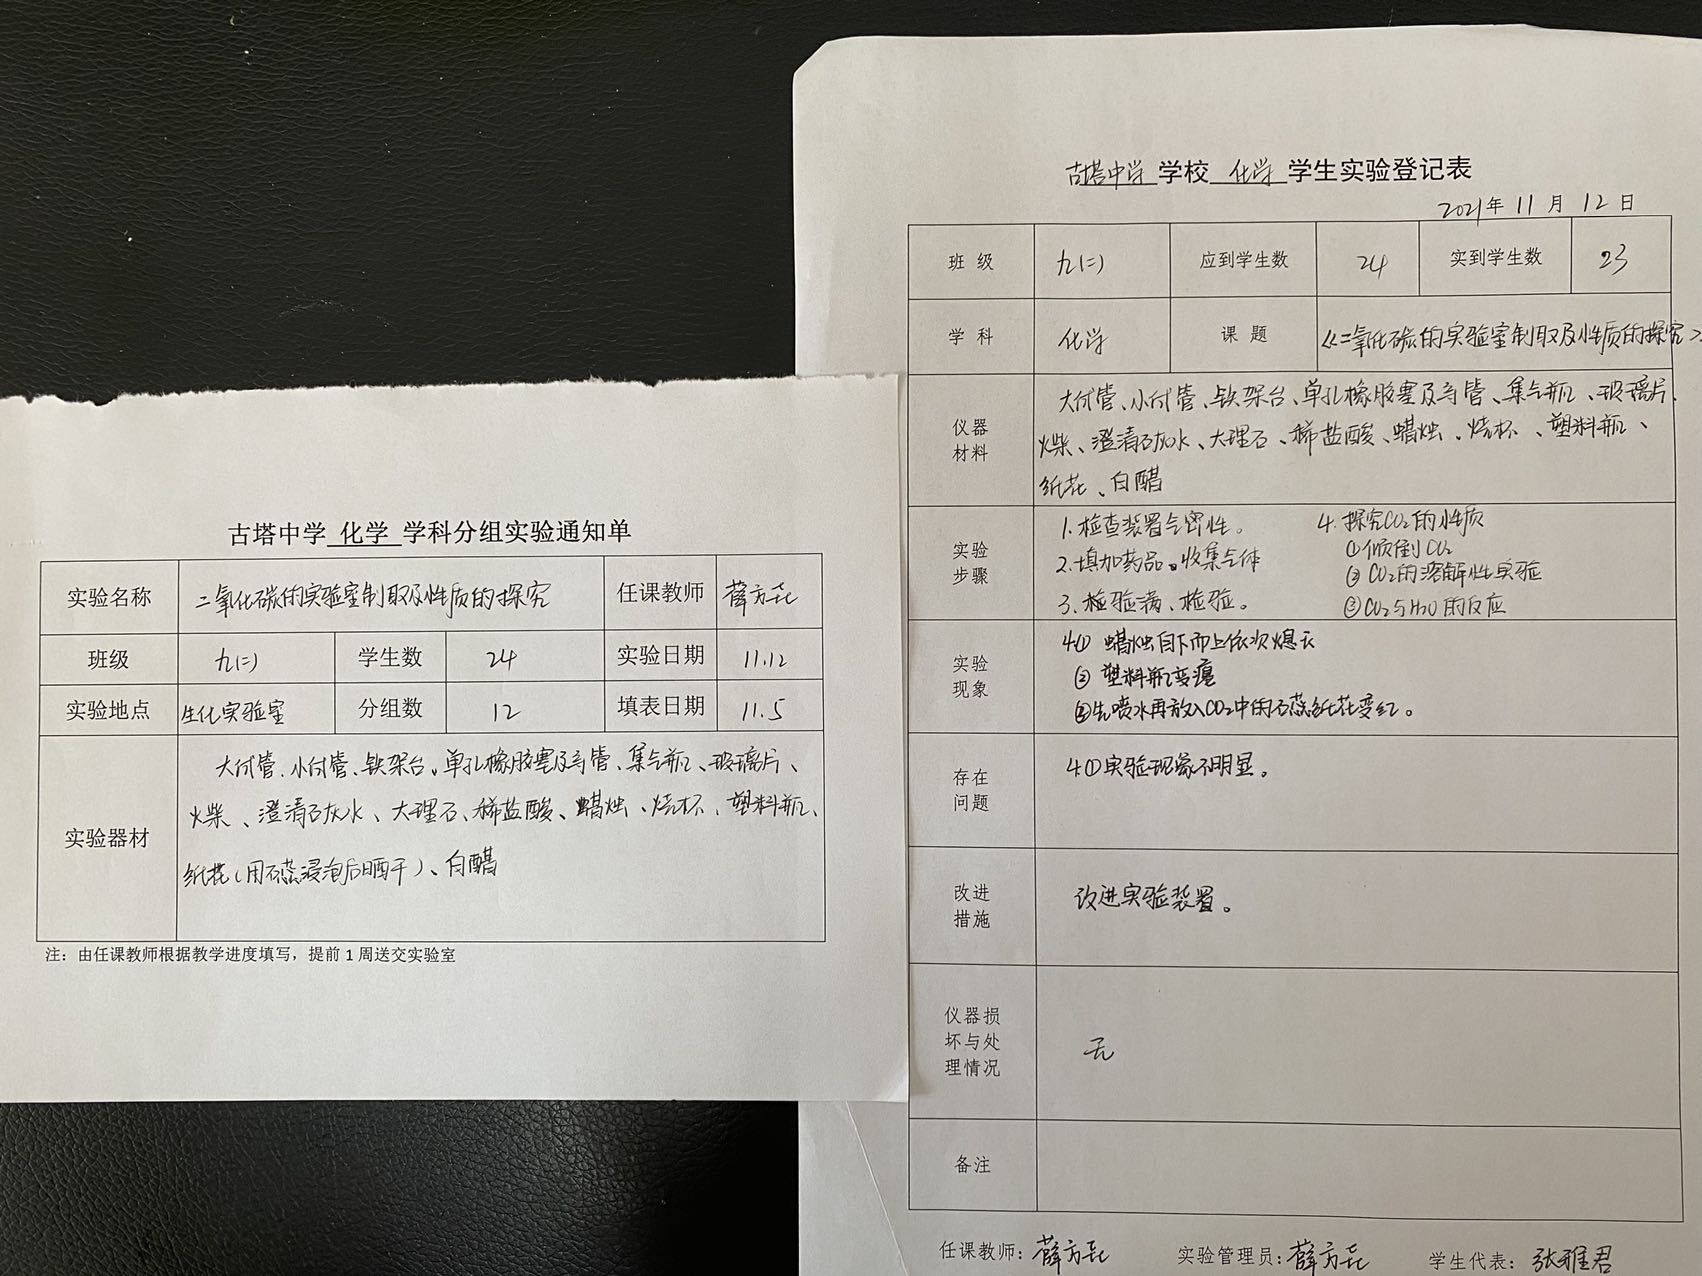 古塔中学 化学 学科分组实验通知单
实验名称 二氧化碳的实验室制取及性质的探究 任课教师 薛方
班级 九(二) 学生数 24 实验日期 11.12
实验地点 生化实验室 分组数 12 填表日期 11.5
实验器材
大试管、小试管、铁架台、单孔橡胶塞及导管、集气瓶、玻璃片、
火柴、澄清石灰水、大理石、稀盐酸、蜡烛、烧杯、塑料瓶、
纸花(用石蕊浸泡后晒干)、白醋
注：由任课教师根据教学进度填写，提前1周送交实验室
古塔中学 学校 化学 学生实验登记表
2021年 11 月 12 日
班 级 九(二) 应到学生数 24 实到学生数 23
学 科 化学 课 题 《二氧化碳的实验室制取及性质的探究》
仪器
材料
大试管、小试管、铁架台、单孔橡胶塞及导管、集气瓶、玻璃片、
火柴、澄清石灰水、大理石、稀盐酸、蜡烛、烧杯、塑料瓶、
纸花、白醋
实验
步骤
1.检查装置气密性。
2.填加药品。收集气体
3.检验满、检验。
4.探究CO2的性质
①倾倒CO2
②CO2的溶解性实验
③CO2与H2O的反应
实验
现象
4① 蜡烛自下而上依次熄灭
② 塑料瓶变瘪
③先喷水再放入CO2中的石蕊纸花变红。
存在
问题
4①实验现象不明显。
改进
措施
改进实验装置。
仪器损
坏与处
理情况
无
备注
任课教师：薛方 实验管理员：薛方 学生代表：张雅君